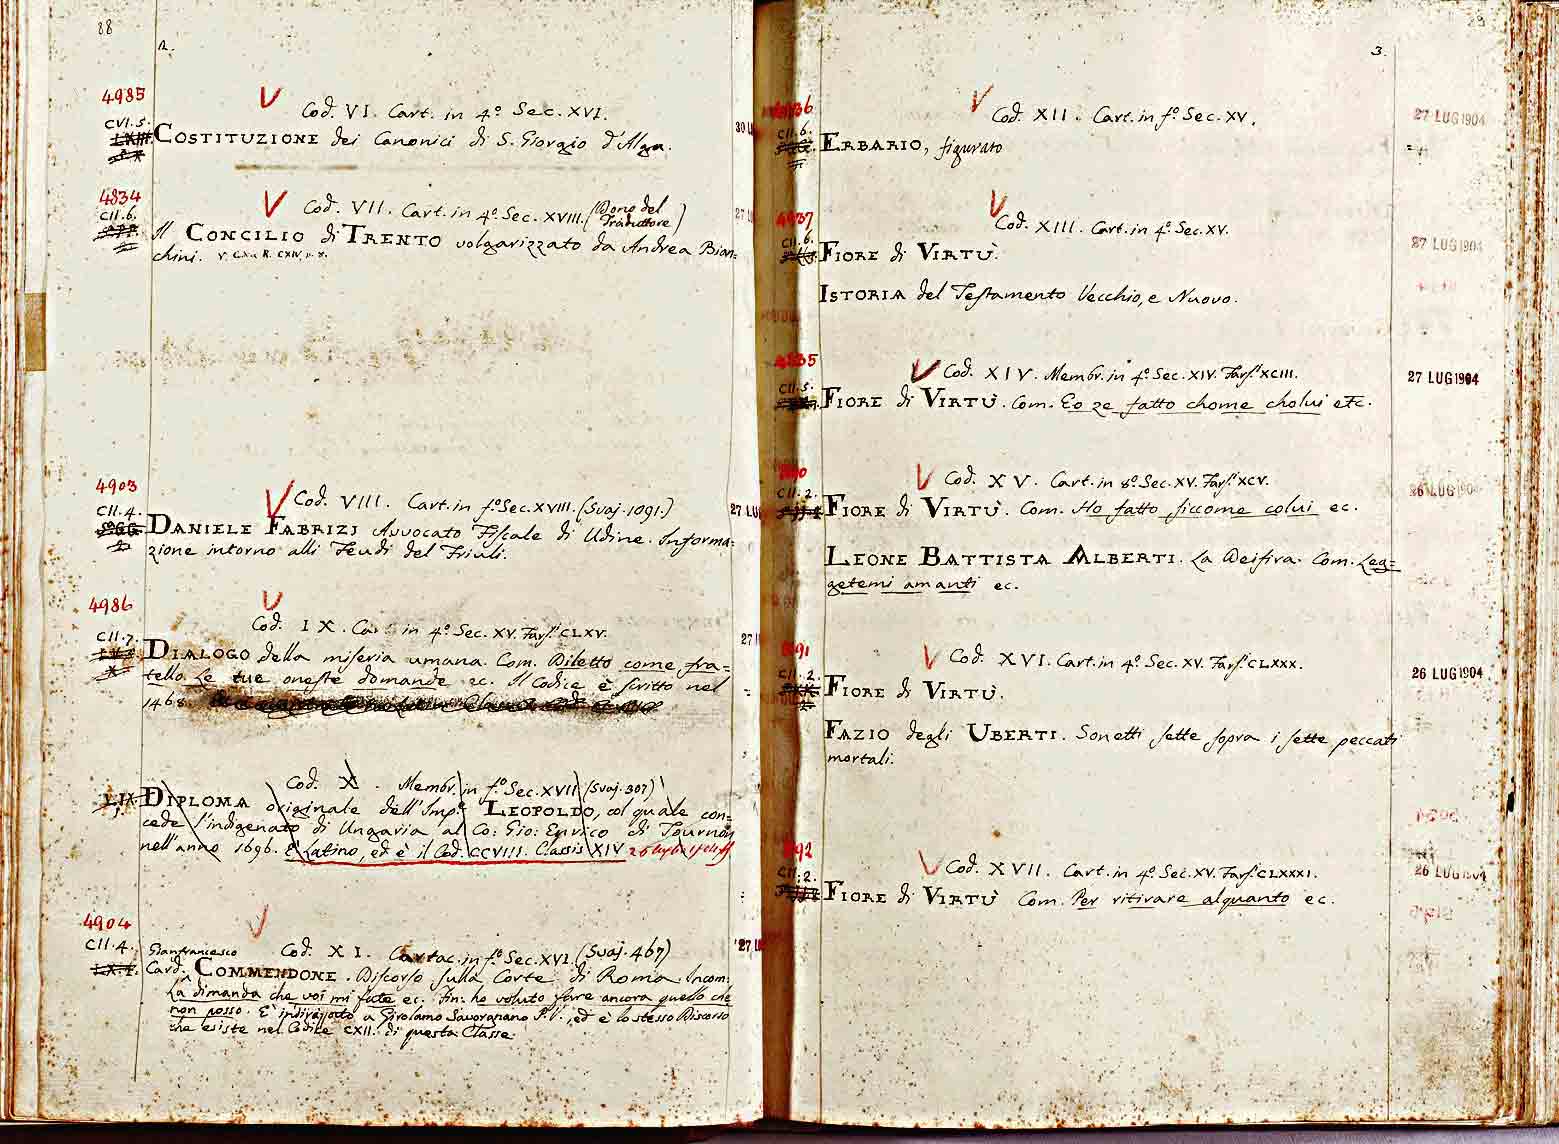 88
2.
4985
Cod. VI. Cart. in 4º Sec. XVI.
CVI. 5.
COSTITUZIONE dei Canonici di S. Giorgio d'Alga.
4834
Cod. VII. Cart. in 4º Sec. XVIII. (Dono del
Traduttore)
CII. 6.
Il CONCILIO di TRENTO volgarizzato da Andrea Bian=
chini.
4903
Cod. VIII. Cart. in fº Sec. XVIII. (Svaj. 1091.)
CII. 4.
27 LU
DANIELE FABRIZJ Avvocato Fiscale di Udine. Informa=
zione intorno alli Feudi del Friuli.
4986
Cod. IX. Cart. in 4º Sec. XV. Fars. CLXV.
CII. 7.
DIALOGO della miseria umana. Com. Diletto come fra=
tello le tue oneste domande ec. Il Codice è scritto nel
1468
Cod. X. Membr. in fº Sec. XVII (Svaj. 307)
DIPLOMA originale dell'Imp. LEOPOLDO, col quale con=
cede l'indigenato di Ungaria al Co: Gio: Enrico di Tournon
nell'anno 1696. È Latino, ed è il Cod. CCVIII. Classis XIV
4904
Cod. XI. Cartac. in fº Sec. XVI. (Svaj. 467)
CII. 4.
Gianfrancesco
Card. COMMENDONE. Discorso sulla Corte di Roma. Incom.
La dimanda che voi mi fate ec. Fin: ho voluto fare ancora quello che
non posso. E' indirizzato a Girolamo Savorgnano P.V., ed è lo stesso Discorso
che esiste nel Codice CXII. di questa Classe.
3.
Cod. XII. Cart. in fº Sec. XV.
27 LUG 1904
CII. 6.
ERBARIO, figurato
4937
Cod. XIII. Cart. in 4º Sec. XV.
27 LUG 1904
CII. 6.
FIORE di VIRTÙ.
ISTORIA del Testamento Vecchio, e Nuovo.
4835
Cod. XIV. Membr. in 4º Sec. XIV. Fars. XCIII.
27 LUG 1904
CII. 5.
FIORE di VIRTÙ. Com. Eo ze fatto chome cholui etc.
Cod. XV. Cart. in 8º Sec. XV. Fars. XCV.
26 LUG 1904
CII. 2.
FIORE di VIRTÙ. Com. Ho fatto siccome colui ec.
LEONE BATTISTA ALBERTI. La Deifira. Com. Leg=
getemi amanti ec.
Cod. XVI. Cart. in 4º Sec. XV. Fars. CLXXX.
26 LUG 1904
CII. 2.
FIORE di VIRTÙ.
FAZIO degli UBERTI. Sonetti sette sopra i sette peccati
mortali.
Cod. XVII. Cart. in 4º Sec. XV. Fars. CLXXXI.
26 LUG 1904
CII. 2.
FIORE di VIRTÙ Com. Per ritirare alquanto ec.